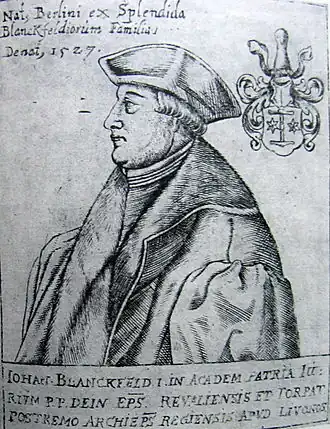 Nat, Berlini ex Splendida
Blanckfeldiorum Familia,
Denat, 1527.
IOHAN. BLANCKFELD. I. IN ACADEM PATRIA IU-
RIUM P.P. DEIN EPS REVALIENSIS ET TORPAT
POSTREMO ARCHIEPS REGIENSIS APUD LIVONOS